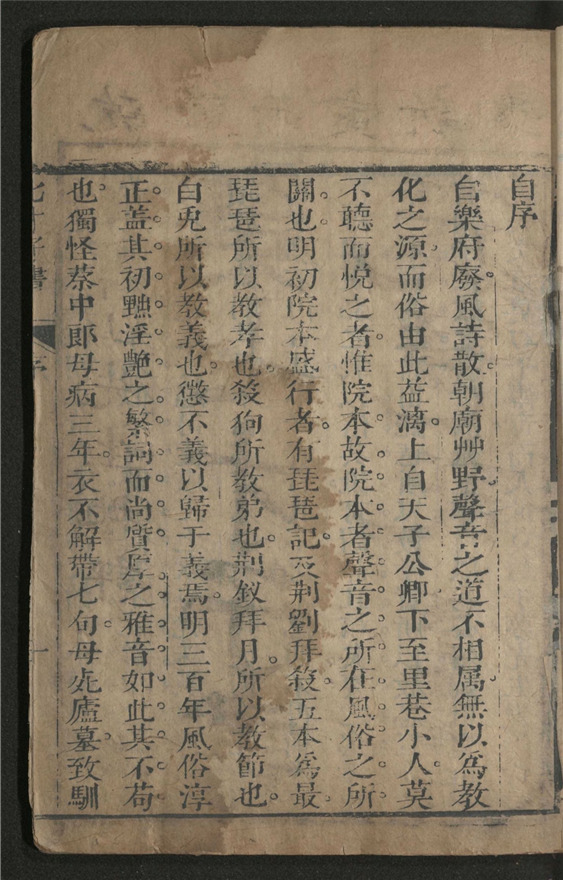 自序
自樂府廢風詩散朝廟艸野聲音之道不相属無以爲教
化之源而俗由此益漓上自天子公卿下至里巷小人莫
不聽而悦之者惟院本故院本者聲音之所在風俗之所
關也明初院本盛行者有琵琶記及荆劉拜殺五本爲最
琵琶所以教孝也殺狗所教弟也荆釵拜月所以教節也
白兎所以教義也懲不義以歸于義焉明三百年風俗淳
正蓋其初黜淫艶之繁詞而尚質厚之雅音如此其不苟
也獨怪蔡中郎母病三年衣不解帶七旬母死廬墓致馴
七才子書
序
一